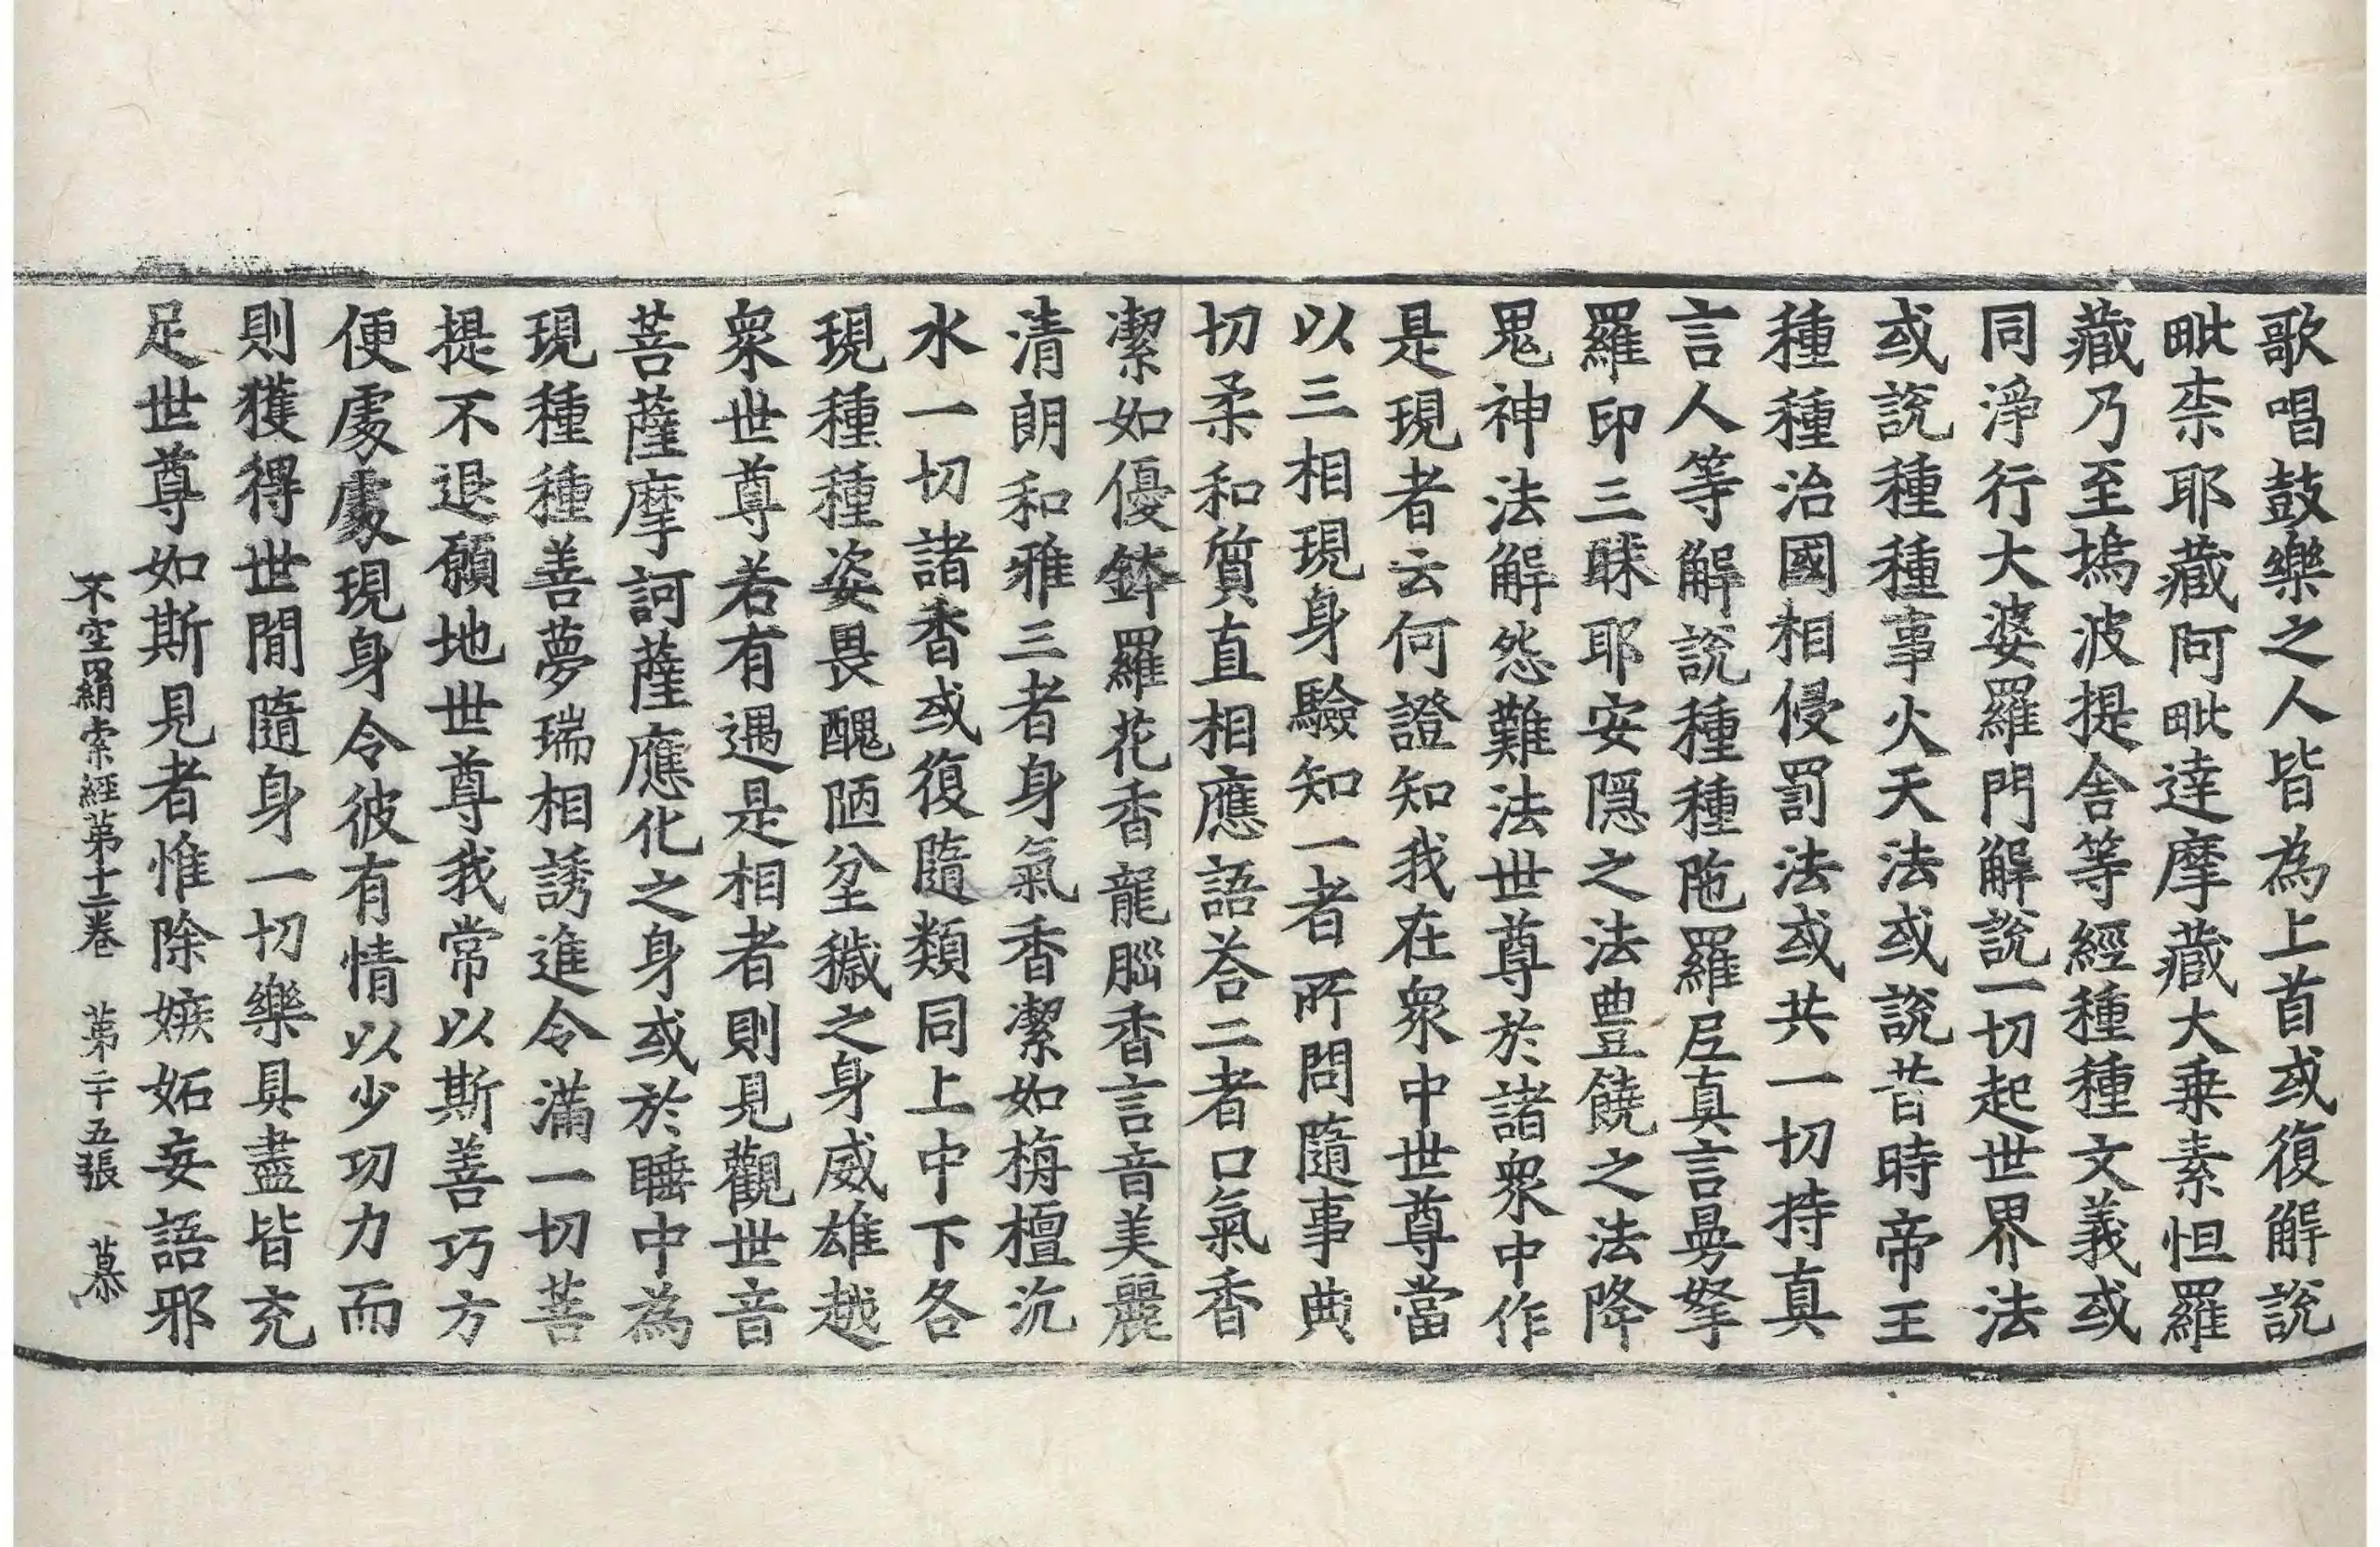 歌唱鼓樂之人皆為上首或復解說
毗柰耶藏阿毗達摩藏大乗素怛羅
藏乃至塢波提舍等經種種文義或
同淨行大婆羅門解說一切起世界法
或說種種事火天法或說昔時帝王
種種治國相侵罰法或共一切持真
言人等解說種種陁羅尼真言曼拏
羅印三昧耶安隱之法豊饒之法降
鬼神法解怨難法世尊於諸衆中作
是現者云何證知我在衆中世尊當
以三相現身驗知一者所問隨事典
切柔和質直相應語荅二者口氣香
潔如優鉢羅花香龍腦香言音美麗
清朗和雅三者身氣香潔如栴檀沉
水一切諸香或復隨類同上中下各
現種種姿畏醜陋坌穢之身威雄越
衆世尊若有遇是相者則見觀世音
菩薩摩訶薩應化之身或於睡中為
現種種善夢瑞相誘進令滿一切菩
提不退願地世尊我常以斯善巧方
便處處現身令彼有情以少功力而
則獲得世間隨身一切樂具盡皆充
足世尊如斯見者惟除嫉妬妄語邪
不空羂索經第十二卷　第二十五張　慕